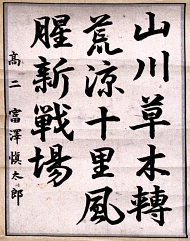 山川草木轉
荒涼十里風
腥新戦場
高二 富澤慎太郎